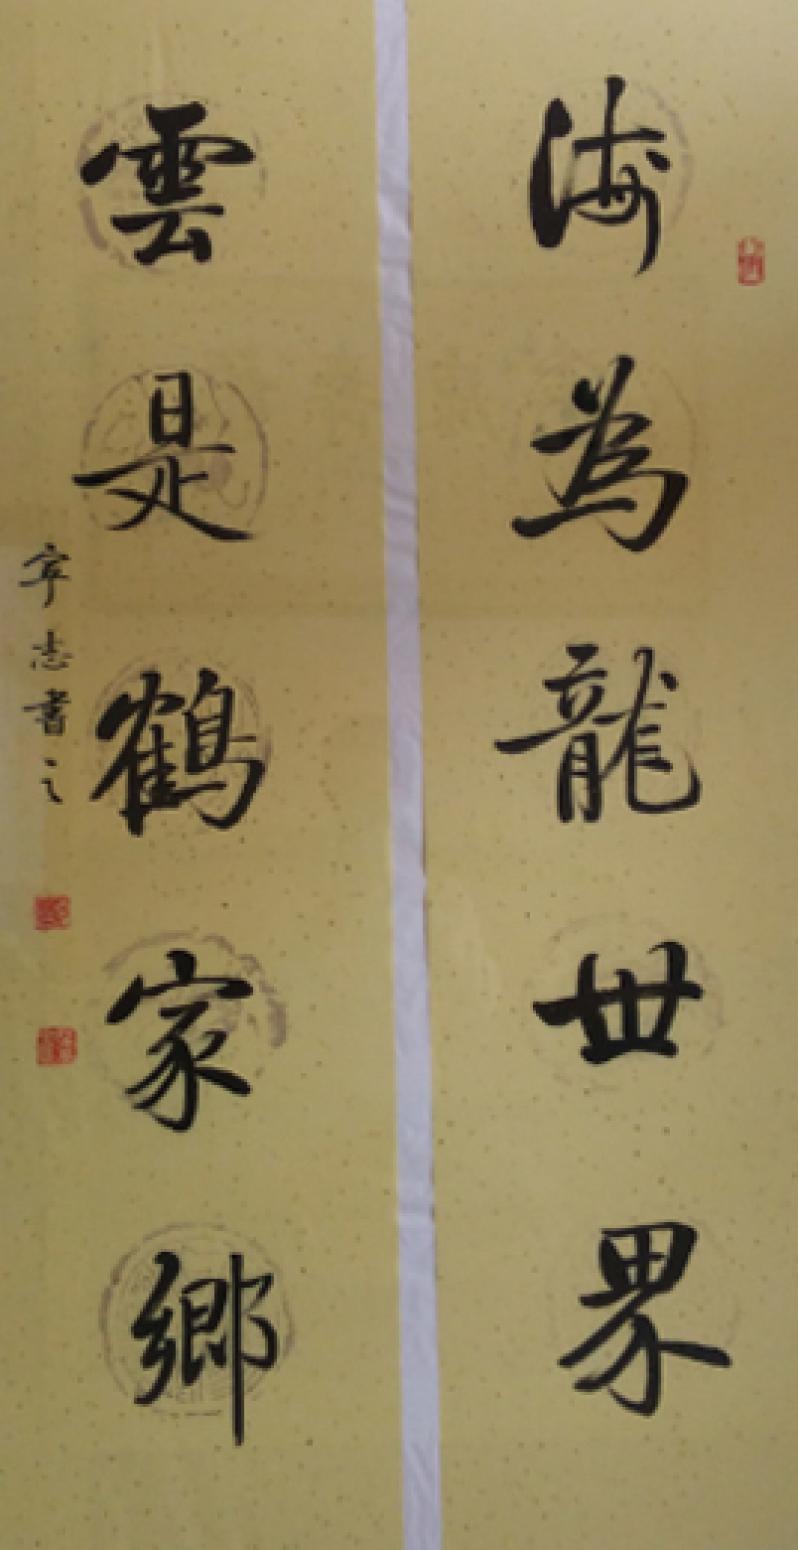 海為龍世界
雲是鶴家鄉
寧志書之